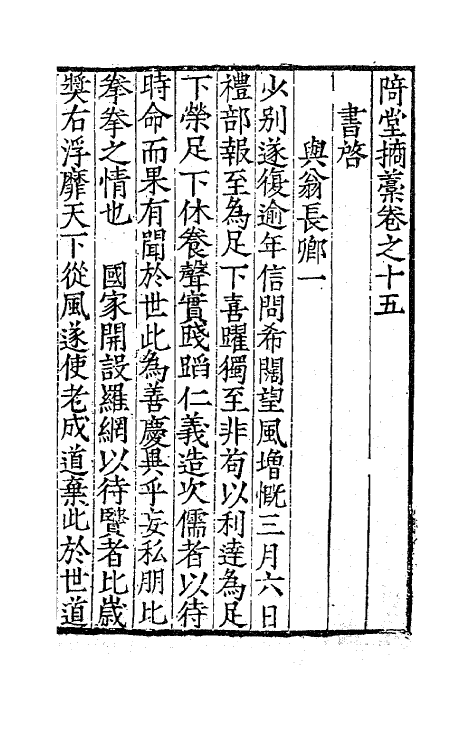 陭堂摘藁卷之十五
書啓
與翁長卿一
少别遂復逾年信問希闊望風增慨三月六日
禮部報至為足下喜曜獨至非苟以利達為足
下榮足下休養聲實踐蹈仁義造次儒者以待
時命而果有聞於世此為善慶異乎妄私朋比
拳拳之情也　國家開設羅網以待賢者比歲
奬右浮靡天下從風遂使老成道棄此於世道